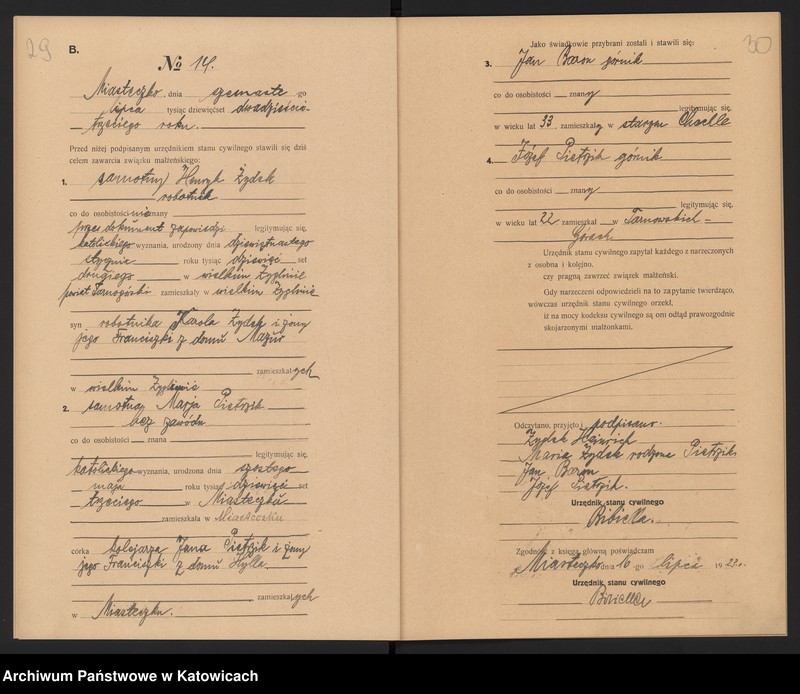 29
B.
No 14.
Miasteczko, dnia szesnaste -go
lipca tysiąc dziewięćset dwadzieścia-
trzeciego roku.
Przed niżej podpisanym urzędnikiem stanu cywilnego stawili się dziś
celem zawarcia związku małżeńskiego:
1. samotny Henryk Zydek
robotnik
co do osobistości nieznany
przez dokument zapowiedzi legitymując się,
katolickiego wyznania, urodzony dnia dziewiętnastego
stycznia roku tysiąc dziewięć set
drugiego w wielkim Żyglinie
powiat Tarnogórski zamieszkały w wielkim Żyglinie
syn robotnika Karola Zydek i żony
jego Franciszki z domu Mazur
zamieszkałych
w wielkim Żyglinie
2. samotna Marja Pietrzik
bez zawodu
co do osobistości znana
legitymując się,
katolickiego wyznania, urodzona dnia szóstego
maja roku tysiąc dziewięć set
trzeciego w Miasteczku
zamieszkała w Miasteczku
córka kolejarza Jana Pietrzik i żony
jego Franciszki z domu Hylla.
zamieszkałych
w Miasteczku.
30
Jako świadkowie przybrani zostali i stawili się:
3. Jan Baron górnik
co do osobistości znany
legitymując się,
w wieku lat 33, zamieszkały w starym
4. Józef Pietrzik górnik
co do osobistości znany
legitymując się,
w wieku lat 22 zamieszkał w Tarnowskich-
Górach
Urzędnik stanu cywilnego zapytał każdego z narzeczonych
z osobna i kolejno,
czy pragną zawrzeć związek małżeński.
Gdy narzeczeni odpowiedzieli na to zapytanie twierdząco,
wówczas urzędnik stanu cywilnego orzekł,
iż na mocy kodeksu cywilnego są oni odtąd prawozgodnie
skojarzonymi małżonkami.
Odczytano, przyjęto i podpisano.
Zydek Heinrich
Maria Zydek rodzona Pietrzik
Jan Baron
Józef Pietrzik.
Urzędnik stanu cywilnego
Bibiella.
Zgodność z księgą główną poświadczam
Miasteczko dnia 16 -go lipca 1923.
Urzędnik stanu cywilnego
Bibiella
Archiwum Państwowe w Katowicach